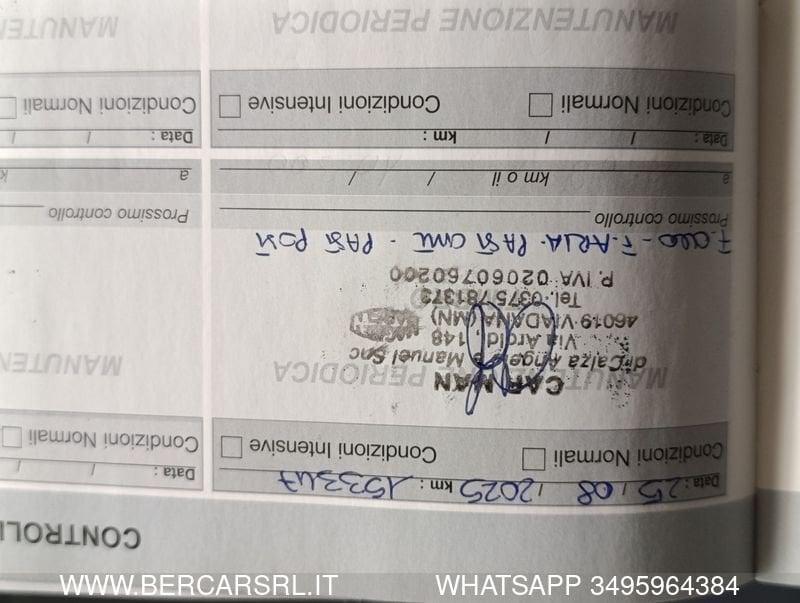 CONTROLLI
Data : 25 / 08 / 2025 km : 153347
Condizioni Normali Condizioni Intensive
MANUTENZIONE PERIODICA
CAR MAN
di Calza Angelo e Manuel Snc
Via Aroldi, 148
46019 VIADANA (MN)
Tel. 0375 781373
P. IVA 02060760200
F. OLIO - F. ARIA - PAST ANT - PAST POST
Prossimo controllo
a km o il / /
Data : / / km :
Condizioni Normali Condizioni Intensive
MANUTENZIONE PERIODICA
Data : / /
Condizioni Normali
MANUTEN
Prossimo controllo
a k
Data : / /
Condizioni Normali
MANUTEN
WWW.BERCARSRL.IT WHATSAPP 3495964384